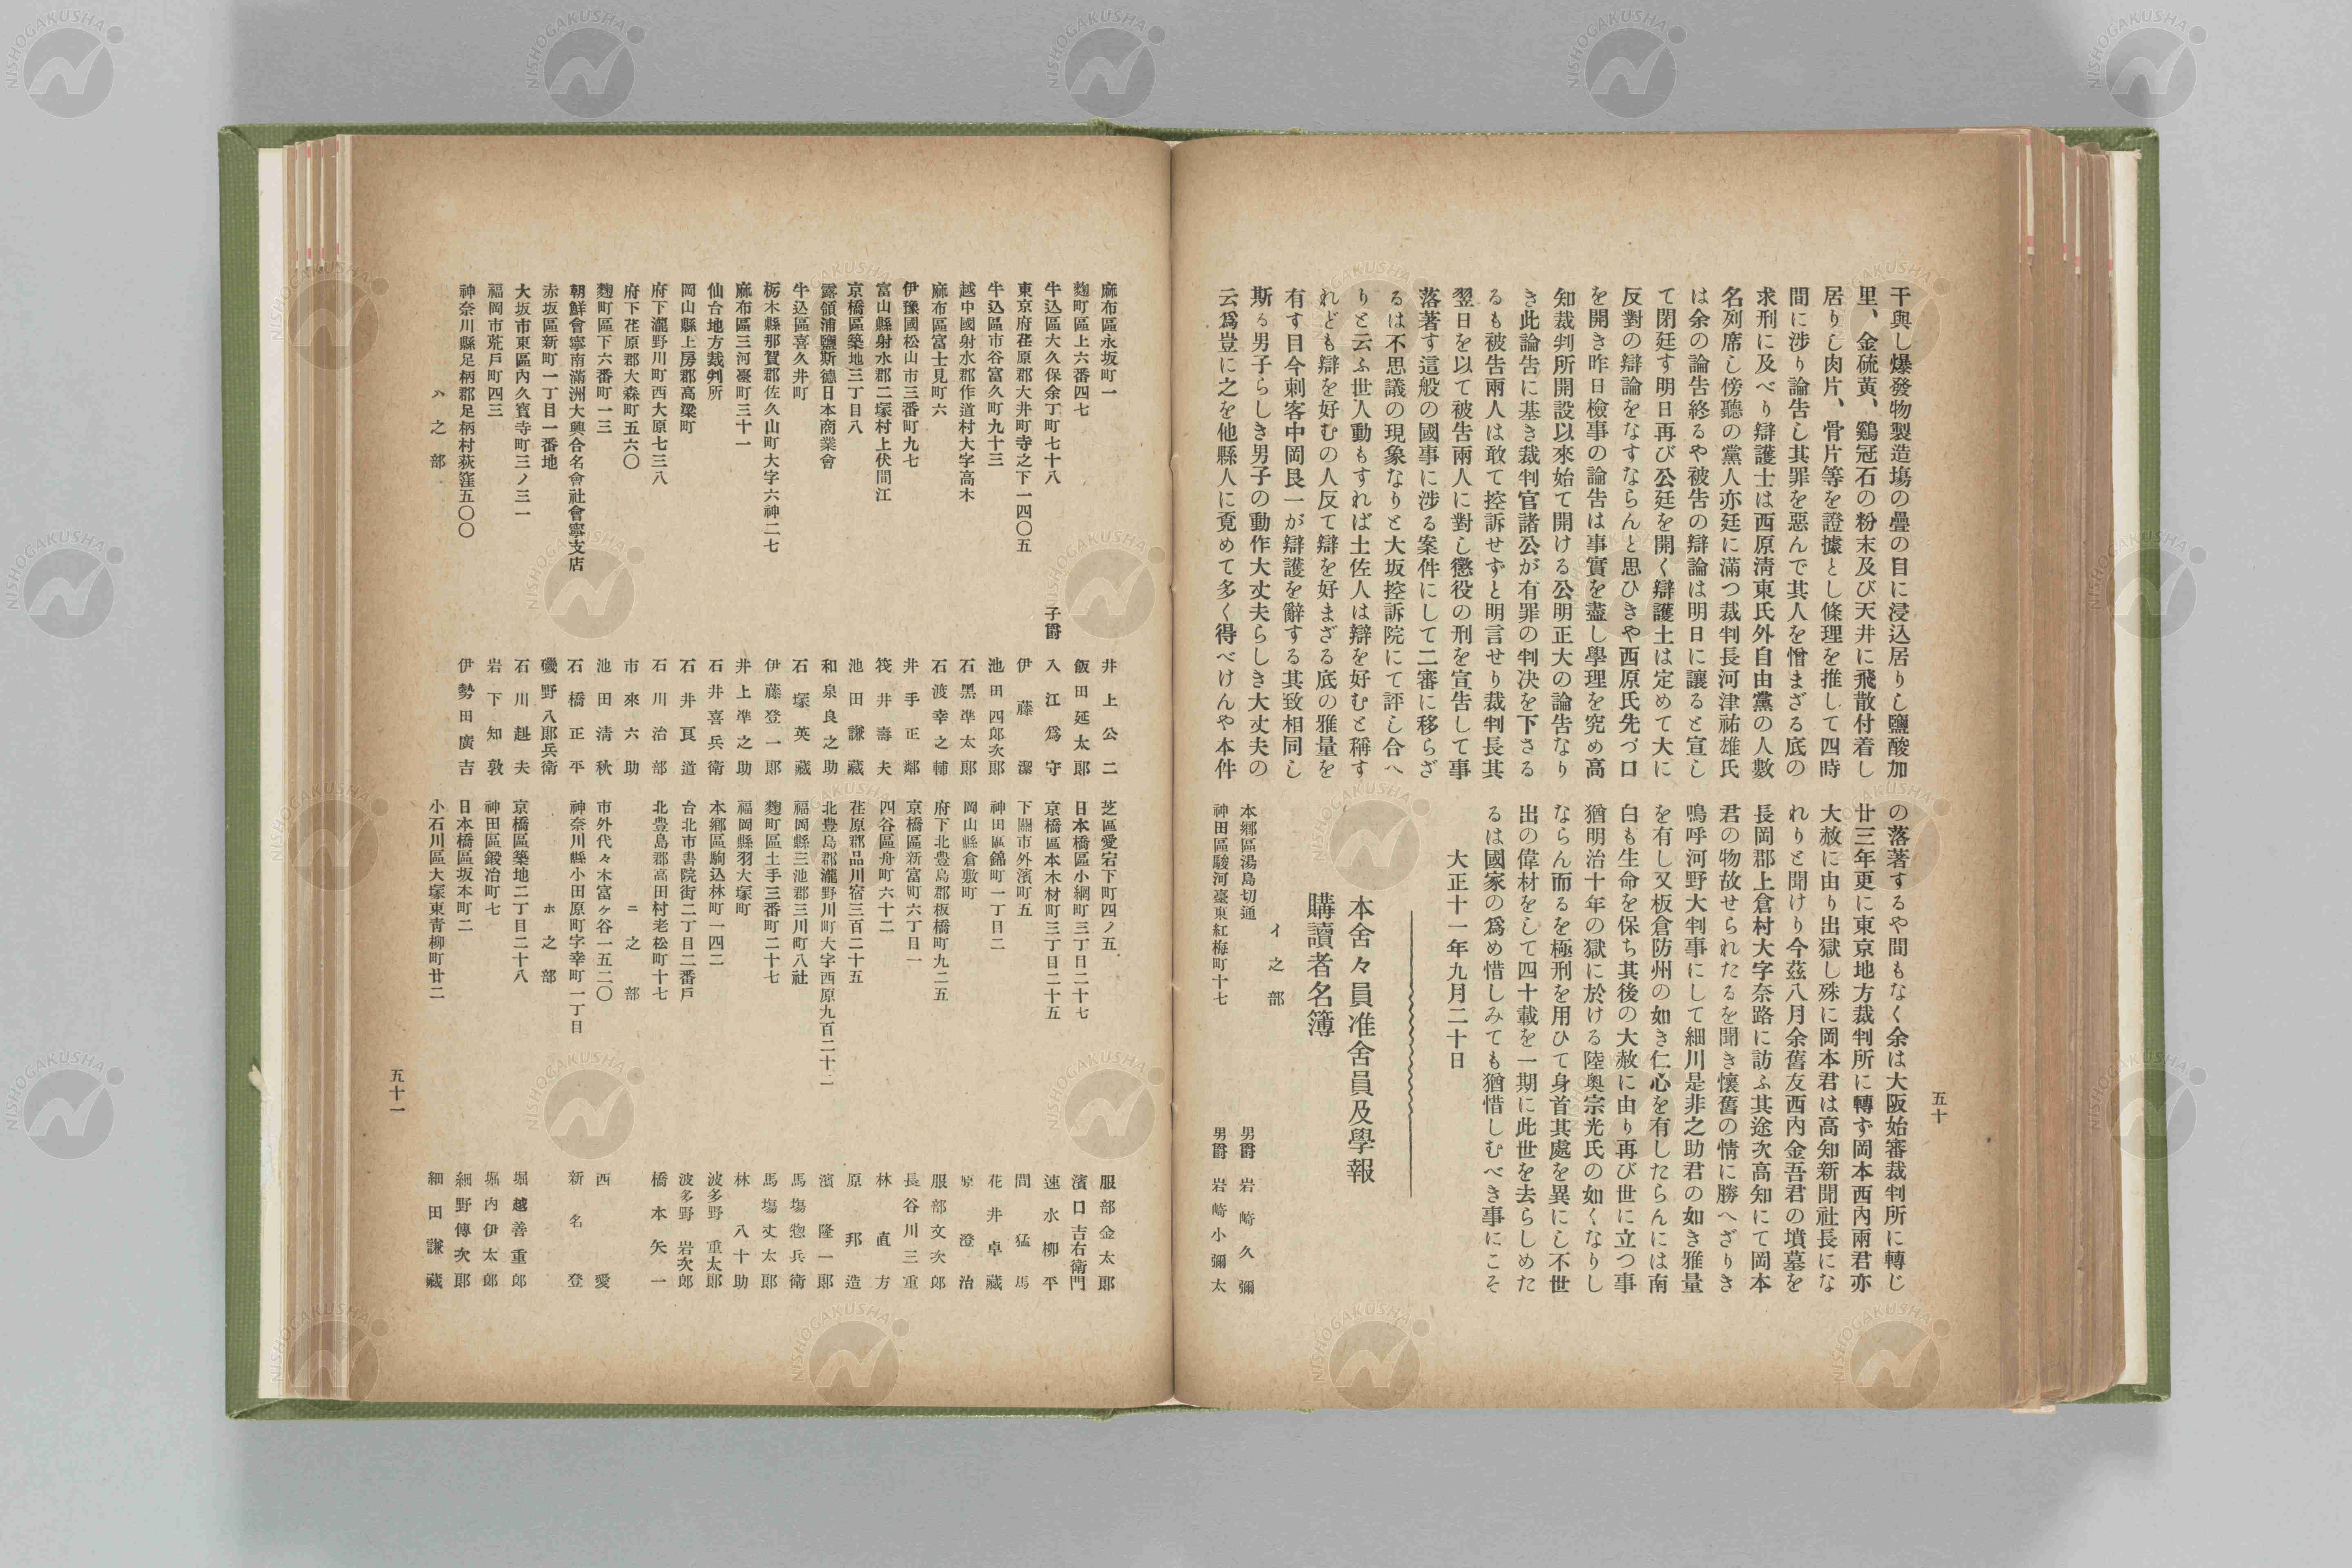 干與し爆發物製造塲の疊の目に浸込居りし鹽酸加
里、金硫黄、鷄冠石の粉末及び天井に飛散付着し
居りし肉片、骨片等を證據とし條理を推して四時
間に涉り論告し其罪を惡んで其人を憎まざる底の
求刑に及べり辯護士は西原淸東氏外自由黨の人數
名列席し傍聽の黨人亦廷に滿つ裁判長河津祐雄氏
は余の論告終るや被告の辯論は明日に讓ると宣し
て閉廷す明日再び公廷を開く辯護士は定めて大に
反對の辯論をなすならんと思ひきや西原氏先づ口
を開き昨日檢事の論告は事實を盡し學理を究め高
知裁判所開設以來始て開ける公明正大の論告なり
き此論告に基き裁判官諸公が有罪の判决を下さる
るも被告兩人は敢て控訴せずと明言せり裁判長其
翌日を以て被告兩人に對し懲役の刑を宣告して事
落著す這般の國事に涉る案件にして二審に移らざ
るは不思議の現象なりと大坂控訴院にて評し合へ
りと云ふ世人動もすれば土佐人は辯を好むと稱す
れども辯を好むの人反て辯を好まざる底の雅量を
有す目今刺客中岡艮一が辯護を辭する其致相同し
斯る男子らしき男子の動作大丈夫らしき大丈夫の
云爲豈に之を他縣人に覔めて多く得べけんや本件
の落著するや間もなく余は大阪始審裁判所に轉じ
廿三年更に東京地方裁判所に轉ず岡本西內兩君亦
大赦に由り出獄し殊に岡本君は高知新聞社長にな
れりと聞けり今茲八月余舊友西內金吾君の墳墓を
長岡郡上倉村大字奈路に訪ふ其途次高知にて岡本
君の物故せられたるを聞き懷舊の情に勝へざりき
嗚呼河野大判事にして細川是非之助君の如き雅量
を有し又板倉防州の如き仁心を有したらんには南
白も生命を保ち其後の大赦に由り再び世に立つ事
猶明治十年の獄に於ける陸奧宗光氏の如くなりし
ならん而るを極刑を用ひて身首其處を異にし不世
出の偉材をして四十載を一期に此世を去らしめた
るは國家の爲め惜しみても猶惜しむべき事にこそ
大正十一年九月二十日
本舍々員准舍員及學報
購讀者名簿
イ之部
本郷區湯島切通 男爵 岩崎久彌
神田區駿河臺東紅梅町十七 男爵 岩崎小彌太
五十
麻布區永坂町一 井上公二
麴町區上六番四七 飯田延太郞
牛込區大久保余丁町七十八 子爵 入江爲守
東京府荏原郡大井町寺之下一四〇五 伊藤潔
牛込區市谷富久町九十三 池田四郞次郞
越中國射水郡作道村大字高木 石黑準太郞
麻布區富士見町六 石渡幸之輔
伊豫國松山市三番町九七 井手正鄰
富山縣射水郡二塚村上伏間江 筏井壽夫
京橋區築地三丁目八 池田謙藏
露領浦鹽斯德日本商業會 和泉良之助
牛込區喜久井町 石塚英藏
栃木縣那賀郡佐久山町大字六神二七 伊藤登一郞
麻布區三河臺町三十一 井上準之助
仙台地方裁判所 石井喜兵衛
岡山縣上房郡高梁町 石井亙道
府下瀧野川町西大原七三八 石川治部
府下荏原郡大森町五六〇 市來六助
麴町區下六番町一三 池田淸秋
朝鮮會寧南滿洲大興合名會社會寧支店 石橋正平
赤坂區新町一丁目一番地 磯野八郞兵衛
大坂市東區內久寶寺町三ノ三一 石川趙夫
福岡市荒戶町四三 岩下知敦
神奈川縣足柄郡足柄村荻窪五〇〇 伊勢田廣吉
ハ之部
芝區愛宕下町四ノ五 服部金太郞
日本橋區小網町三丁目二十七 濱口吉右衛門
京橋區本木材町三丁目二十五 速水柳平
下關市外濱町五 間猛馬
神田區錦町一丁目二 花井卓藏
岡山縣倉敷町 原澄治
府下北豊島郡板橋町九二五 服部文次郞
京橋區新富町六丁目一 長谷川三重
四谷區舟町六十二 林直方
荏原郡品川宿三百二十五 原邦造
北豊島郡瀧野川町大字西原九百二十二 濱隆一郞
福岡縣三池郡三川町八社 馬塲惣兵衛
麴町區土手三番町二十七 馬塲丈太郞
福岡縣羽犬塚町 林八十助
本郷區駒込林町一四二 波多野重太郞
台北市書院街二丁目二番戶 波多野岩次郞
北豊島郡高田村老松町十七 橋本矢一
ニ之部
市外代々木富ヶ谷一五二〇 西愛
神奈川縣小田原町字幸町一丁目 新名登
ホ之部
京橋區築地二丁目二十八 堀越善重郞
神田區鍛冶町七 堀內伊太郞
日本橋區坂本町二 細野傳次郞
小石川區大塚東靑柳町廿二 細田謙藏
五十一